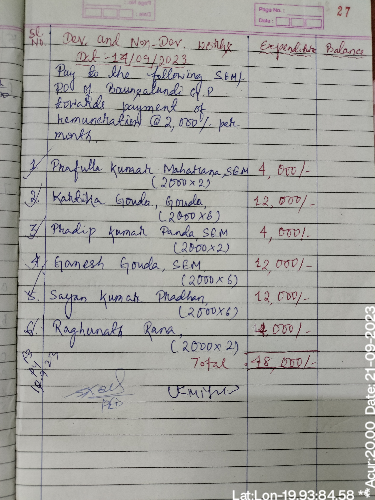 Page No.:
Date:
27
Sl. No.
Dev. and Non-Dev. works
Expenditure
Balance
Dt-14/09/2023
Pay to the following SEM/
of Baungalundi G.P
towards payment of
remuneration @ 2,000/- per
month.
1. Prafulla Kumar Maharana, SEM 4,000/-
(2000×2)
2. Kartika Gouda, Gouda 12,000/-
(2000×6)
3. Pradip Kumar Panda, SEM 4,000/-
(2000×2)
4. Ganesh Gouda, SEM 12,000/-
(2000×6)
5. Sayan Kumar Pradhan, 12,000/-
(2000×6)
6. Raghunath Rana, 4,000/-
(2000×2)
Total 48,000/-
Lat:Lon-19.93:84.58 ** Acur:20.00 Date:22-09-2023